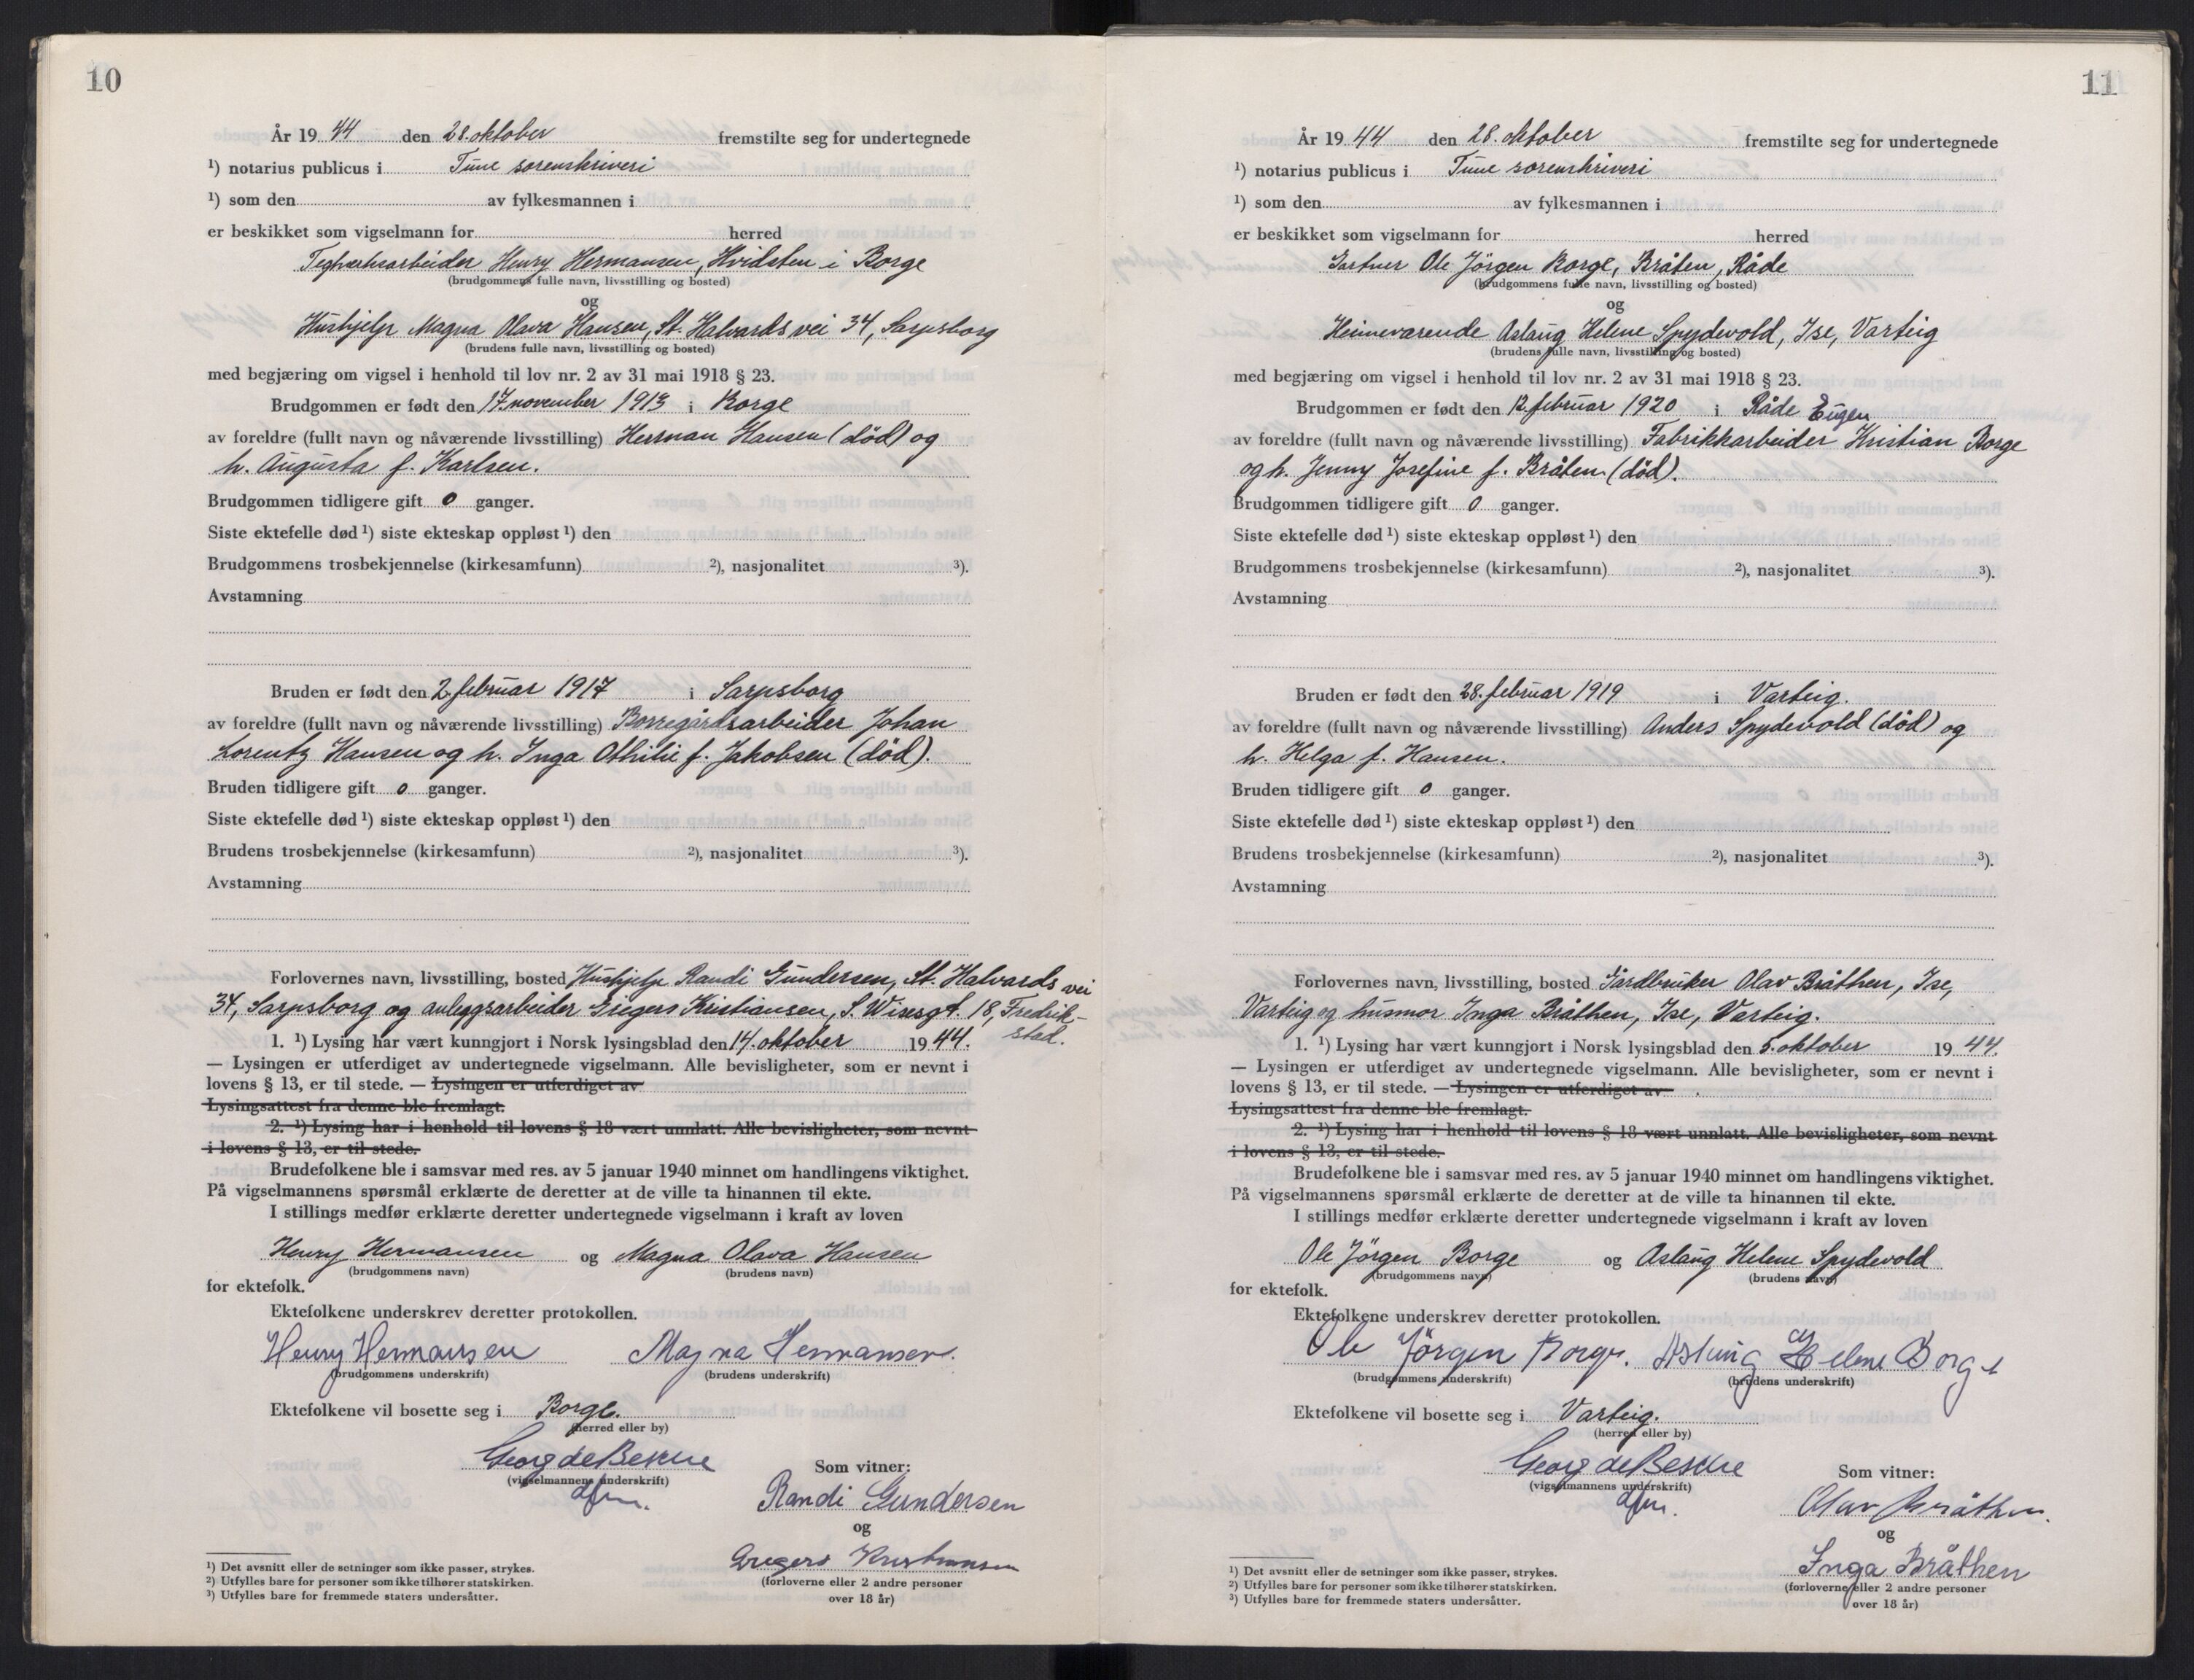 10
År 19 44 den 28. oktober fremstilte seg for undertegnede
¹) notarius publicus i Tune sorenskriveri
¹) som den av fylkesmannen i
er beskikket som vigselmann for herred
Teglverksarbeider Henry Hermansen, Hvidsten i Borge
(brudgommens fulle navn, livsstilling og bosted)
og
Hushjelp Magna Olava Hansen, St. Halvards vei 34, Sarpsborg
(brudens fulle navn, livsstilling og bosted)
med begjæring om vigsel i henhold til lov nr. 2 av 31 mai 1918 § 23.
Brudgommen er født den 17. november 1913 i Borge
av foreldre (fullt navn og nåværende livsstilling) Herman Hansen (död) og
h. Augusta f. Karlsen.
Brudgommen tidligere gift 0 ganger.
Siste ektefelle død ¹) siste ekteskap oppløst ¹) den
Brudgommens trosbekjennelse (kirkesamfunn) ²), nasjonalitet ³).
Avstamning
Bruden er født den 2. februar 1917 i Sarpsborg
av foreldre (fullt navn og nåværende livsstilling) Borregårdsarbeider Johan
Lorentz Hansen og h. Inga Othilie f. Jakobsen (död).
Bruden tidligere gift 0 ganger.
Siste ektefelle død ¹) siste ekteskap oppløst ¹) den
Brudens trosbekjennelse (kirkesamfunn) ²), nasjonalitet ³).
Avstamning
Forlovernes navn, livsstilling, bosted Hushjelp Randi Gundersen, St. Halvards vei
34, Sarpsborg og anleggsarbeider Gregers Kristiansen, S. Wiesesgt. 18, Fredrik-
stad.
1. ¹) Lysing har vært kunngjort i Norsk lysingsblad den 14. oktober 19 44.
— Lysingen er utferdiget av undertegnede vigselmann. Alle bevisligheter, som er nevnt i
lovens § 13, er til stede. — Lysingen er utferdiget av
Lysingsattest fra denne ble fremlagt.
2. ¹) Lysing har i henhold til lovens § 18 vært unnlatt. Alle bevisligheter, som nevnt
i lovens § 13, er til stede.
Brudefolkene ble i samsvar med res. av 5 januar 1940 minnet om handlingens viktighet.
På vigselmannens spørsmål erklærte de deretter at de ville ta hinannen til ekte.
I stillings medfør erklærte deretter undertegnede vigselmann i kraft av loven
Henry Hermansen og Magna Olava Hansen
(brudgommens navn) (brudens navn)
for ektefolk.
Ektefolkene underskrev deretter protokollen.
Henry Hermansen Magna Hermansen.
(brudgommens underskrift) (brudens underskrift)
Ektefolkene vil bosette seg i Borge.
(herred eller by)
Georg de Besche
(vigselmannens underskrift)
dfm.
Som vitner:
Randi Gundersen
og
Gregers Kristiansen
(forloverne eller 2 andre personer
over 18 år)
¹) Det avsnitt eller de setninger som ikke passer, strykes.
²) Utfylles bare for personer som ikke tilhører statskirken.
³) Utfylles bare for fremmede staters undersåtter.
11
År 19 44 den 28. oktober fremstilte seg for undertegnede
¹) notarius publicus i Tune sorenskriveri
¹) som den av fylkesmannen i
er beskikket som vigselmann for herred
Gartner Ole Jörgen Borge, Bråten, Råde
(brudgommens fulle navn, livsstilling og bosted)
og
Heimeværende Aslaug Helene Spydevold, Ise, Varteig
(brudens fulle navn, livsstilling og bosted)
med begjæring om vigsel i henhold til lov nr. 2 av 31 mai 1918 § 23.
Brudgommen er født den 12. februar 1920 i Råde
Eugen
av foreldre (fullt navn og nåværende livsstilling) Fabrikkarbeider Kristian Borge
og h. Jenny Josefine f. Bråten (död).
Brudgommen tidligere gift 0 ganger.
Siste ektefelle død ¹) siste ekteskap oppløst ¹) den
Brudgommens trosbekjennelse (kirkesamfunn) ²), nasjonalitet ³).
Avstamning
Bruden er født den 28. februar 1919 i Varteig.
av foreldre (fullt navn og nåværende livsstilling) Anders Spydevold (död) og
h. Helga f. Hansen.
Bruden tidligere gift 0 ganger.
Siste ektefelle død ¹) siste ekteskap oppløst ¹) den
Brudens trosbekjennelse (kirkesamfunn) ²), nasjonalitet ³).
Avstamning
Forlovernes navn, livsstilling, bosted Gårdbruker Olav Bråthen, Ise,
Varteig og husmor Inga Bråthen, Ise, Varteig.
1. ¹) Lysing har vært kunngjort i Norsk lysingsblad den 5. oktober 19 44.
— Lysingen er utferdiget av undertegnede vigselmann. Alle bevisligheter, som er nevnt i
lovens § 13, er til stede. — Lysingen er utferdiget av
Lysingsattest fra denne ble fremlagt.
2. ¹) Lysing har i henhold til lovens § 18 vært unnlatt. Alle bevisligheter, som nevnt
i lovens § 13, er til stede.
Brudefolkene ble i samsvar med res. av 5 januar 1940 minnet om handlingens viktighet.
På vigselmannens spørsmål erklærte de deretter at de ville ta hinannen til ekte.
I stillings medfør erklærte deretter undertegnede vigselmann i kraft av loven
Ole Jörgen Borge og Aslaug Helene Spydevold
(brudgommens navn) (brudens navn)
for ektefolk.
Ektefolkene underskrev deretter protokollen.
Ole Jörgen Borge. Aslaug Helene Borge
(brudgommens underskrift) (brudens underskrift)
Ektefolkene vil bosette seg i Varteig.
(herred eller by)
Georg de Besche
(vigselmannens underskrift)
dfm.
Som vitner:
Olav Bråthen.
og
Inga Bråthen
(forloverne eller 2 andre personer
over 18 år)
¹) Det avsnitt eller de setninger som ikke passer, strykes.
²) Utfylles bare for personer som ikke tilhører statskirken.
³) Utfylles bare for fremmede staters undersåtter.